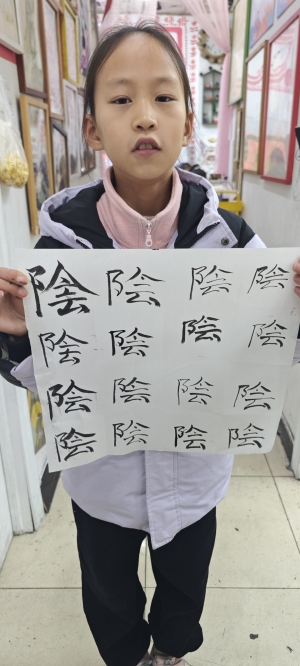 陰 陰 陰 陰
陰 陰 陰 陰
陰 陰 陰 陰
陰 陰 陰 陰